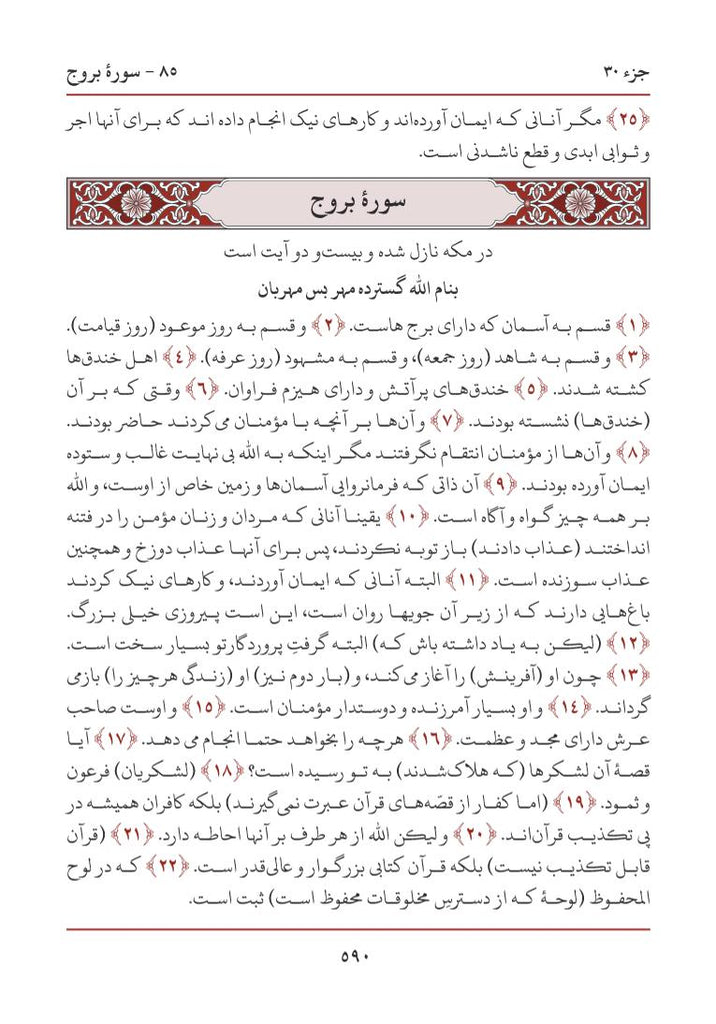 جزء ۳۰
۸۵ - سورۀ بروج
﴿۲۵﴾ مگر آنانی که ایمان آورده‌اند و کارهای نیک انجام داده اند که برای آنها اجر
و ثوابی ابدی و قطع ناشدنی است.
سورۀ بروج
در مکه نازل شده و بیست‌و دو آیت است
بنام الله گسترده مهر بس مهربان
﴿۱﴾ قسم به آسمان که دارای برج هاست. ﴿۲﴾ و قسم به روز موعود (روز قیامت).
﴿۳﴾ و قسم به شاهد (روز جمعه)، و قسم به مشهود (روز عرفه). ﴿٤﴾ اهل خندق‌ها
کشته شدند. ﴿۵﴾ خندق‌های پرآتش و دارای هیزم فراوان. ﴿۶﴾ وقتی که بر آن
(خندق‌ها) نشسته بودند. ﴿۷﴾ و آن‌ها بر آنچه با مؤمنان می‌کردند حاضر بودند.
﴿۸﴾ و آن‌ها از مؤمنان انتقام نگرفتند مگر اینکه به الله بی نهایت غالب و ستوده
ایمان آورده بودند. ﴿۹﴾ آن ذاتی که فرمانروایی آسمان‌ها و زمین خاص از اوست، و الله
بر همه چیز گواه و آگاه است. ﴿۱۰﴾ یقینا آنانی که مردان و زنان مؤمن را در فتنه
انداختند (عذاب دادند) باز توبه نکردند، پس برای آنها عذاب دوزخ و همچنین
عذاب سوزنده است. ﴿۱۱﴾ البته آنانی که ایمان آوردند، و کارهای نیک کردند
باغ‌هایی دارند که از زیر آن جویها روان است، این است پیروزی خیلی بزرگ.
﴿۱۲﴾ (لیکن به یاد داشته باش که) البته گرفتِ پروردگارتو بسیار سخت است.
﴿۱۳﴾ چون او (آفرینش) را آغاز می‌کند، و (بار دوم نیز) او (زندگی هرچیز را) بازمی
گرداند. ﴿۱٤﴾ و او بسیار آمرزنده و دوستدار مؤمنان است. ﴿۱۵﴾ و اوست صاحب
عرش دارای مجد و عظمت. ﴿۱۶﴾ هرچه را بخواهد حتما انجام می دهد. ﴿۱۷﴾ آیا
قصۀ آن لشکرها (که هلاک‌شدند) به تو رسیده است؟ ﴿۱۸﴾ (لشکریان) فرعون
و ثمود. ﴿۱۹﴾ (اما کفار از قصّه‌های قرآن عبرت نمی‌گیرند) بلکه کافران همیشه در
پی تکذیب قرآن‌اند. ﴿۲۰﴾ و لیکن الله از هر طرف بر آنها احاطه دارد. ﴿۲۱﴾ (قرآن
قابل تکذیب نیست) بلکه قرآن کتابی بزرگوار و عالی‌قدر است. ﴿۲۲﴾ که در لوح
المحفوظ (لوحۀ که از دسترسِ مخلوقات محفوظ است) ثبت است.
۵۹۰